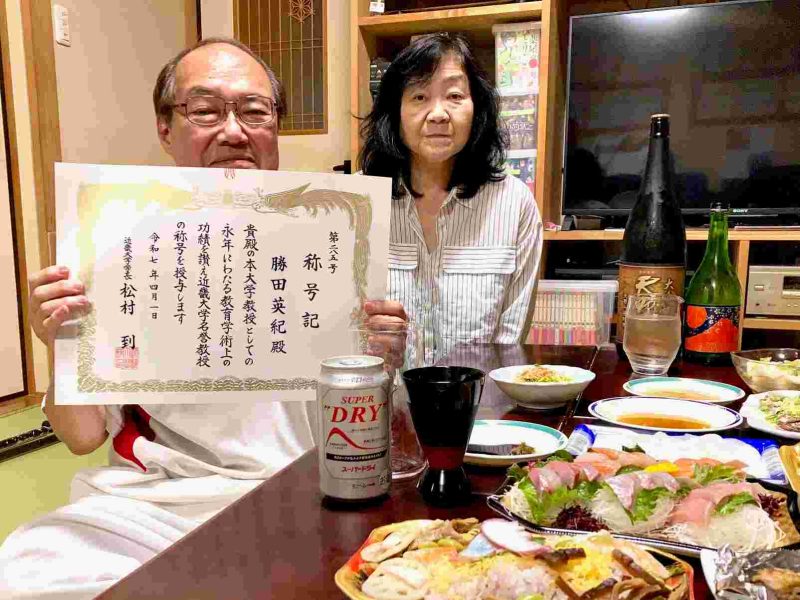 第二八五号
称号記
勝田英紀殿
貴殿の本大学教授としての
永年にわたる教育学術上の
功績を讃え近畿大学名誉教授
の称号を授与します
令和七年四月一日
近畿大学学長 松村 到
SUPER
"DRY"
スーパードライ
SONY